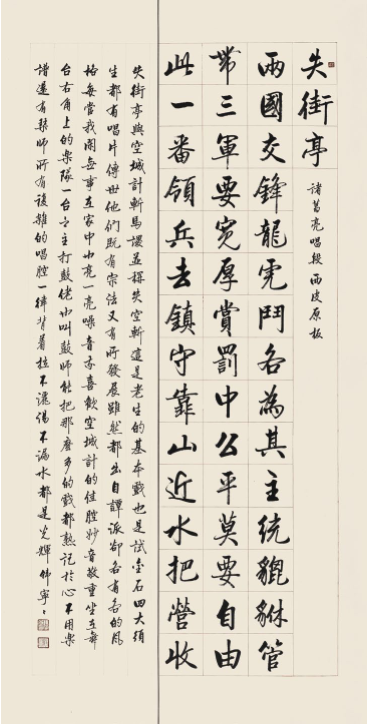 失街亭
諸葛亮唱段 西皮原板
兩國交鋒龍虎鬥各為其主統貔貅管
帶三軍要寬厚賞罰中公平莫要自由
此一番領兵去鎮守靠山近水把營收
失街亭與空城計斬馬謖並稱失空斬這是老生的基本戲也是試金石四大須
生都有唱片傳世他們既有宗法又有所發展雖然都出自譚派卻各有各的風
格每當我閑無事在家中也亮一亮嗓音亦喜歡空城計的佳腔妙音敬重坐在舞
台右角上的樂隊一台之主打鼓佬也叫鼓師能把那麼多的戲都熟記於心不用樂
譜還有琴師所有複雜的唱腔一律背著拉不灑湯不漏水都是光輝